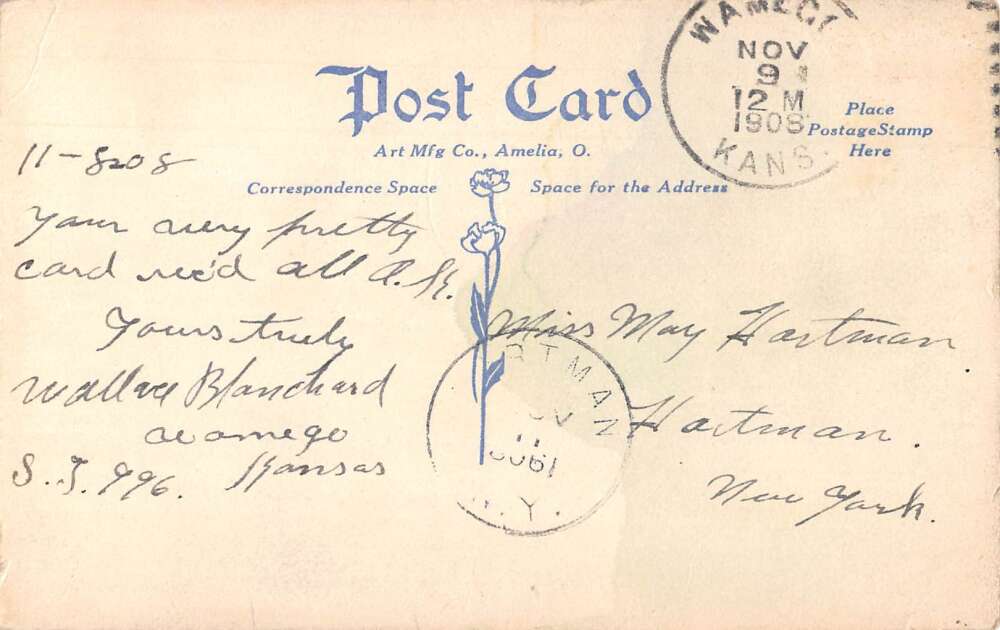 Post Card
Art Mfg Co., Amelia, O.
Correspondence Space
Space for the Address
Place
PostageStamp
Here
WAMEGO
NOV
9
12 M
1908
KANS.
11-8-08
Your very pretty
card rec'd all O.K.
Yours truly
Wallace Blanchard
Wamego
Kansas
S.J. 996.
Miss May Hartman
Hartman.
New York.
RTMAN
NOV
11
1908
N.Y.